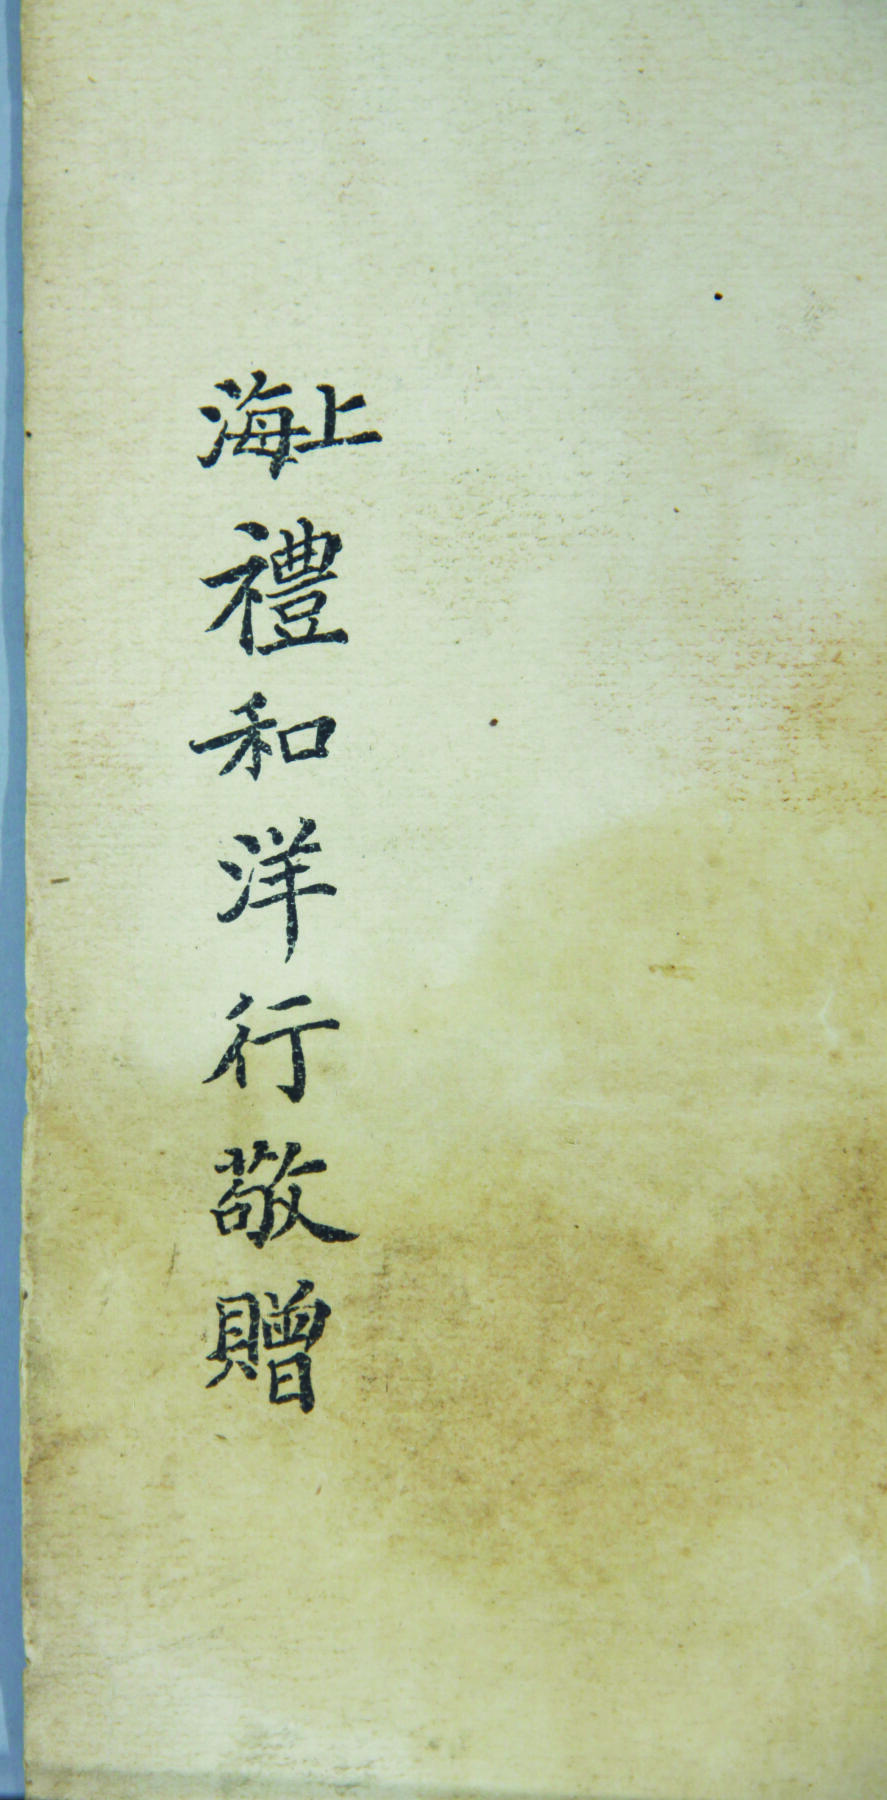 上海禮和洋行敬贈